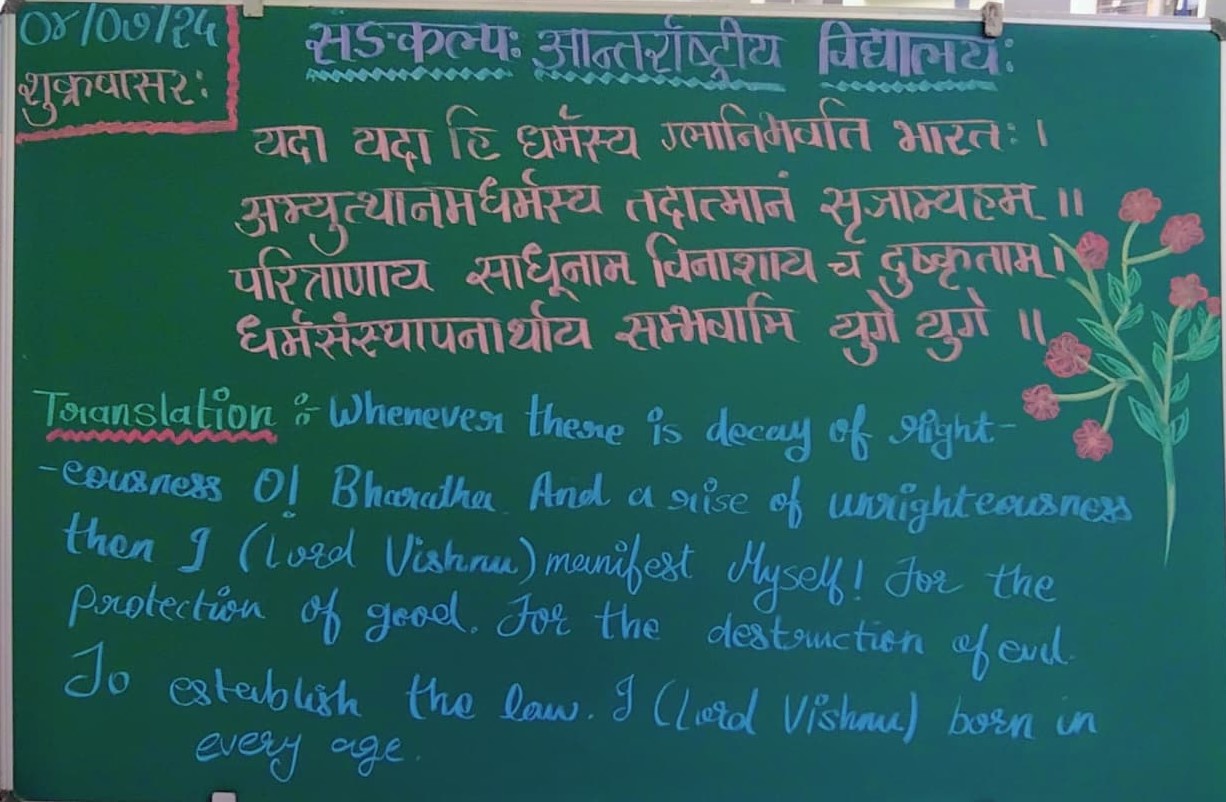 ०४/०७/२५
शुक्रवासरः
सङ्कल्पः आन्तर्राष्ट्रीय विद्यालयः
यदा यदा हि धर्मस्य ग्लानिर्भवति भारतः ।
अभ्युत्थानमधर्मस्य तदात्मानं सृजाम्यहम् ॥
परित्राणाय साधूनाम विनाशाय च दुष्कृताम् ।
धर्मसंस्थापनार्थाय सम्भवामि युगे युगे ॥
Translation :- Whenever there is decay of right-
-eousness O! Bharatha. And a rise of unrighteousness
then I (Lord Vishnu) manifest Myself! For the
protection of good. For the destruction of evil.
To establish the law. I (Lord Vishnu) born in
every age.